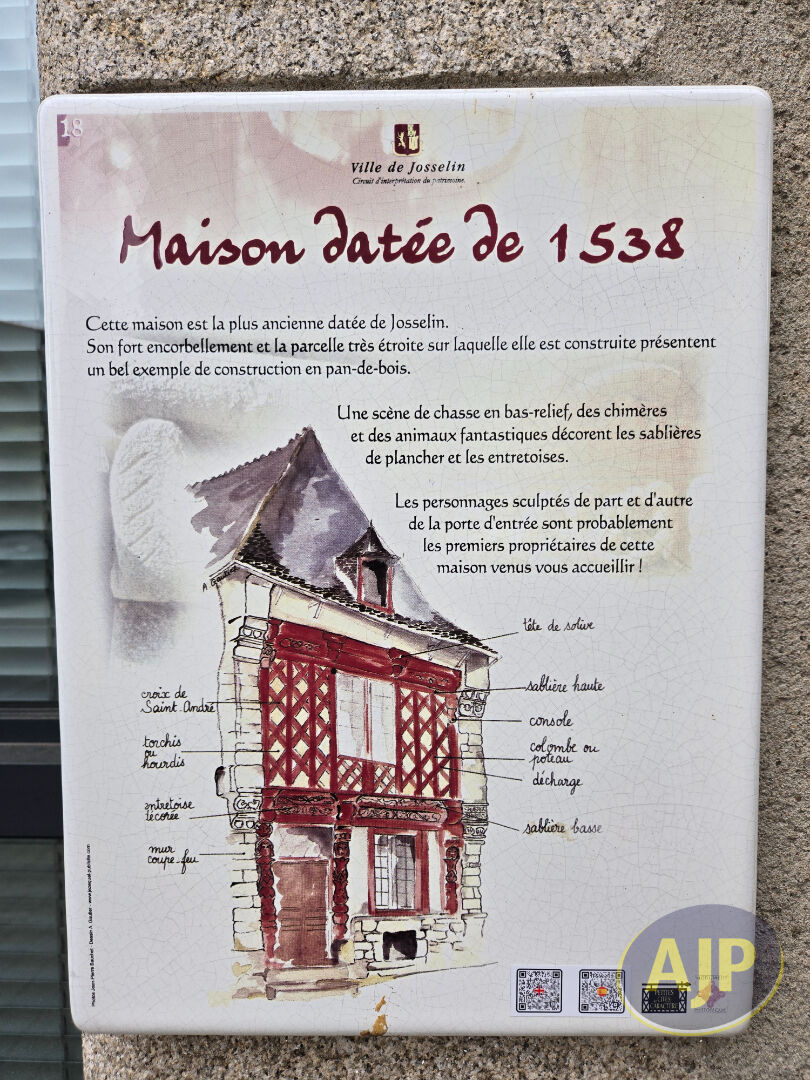 18
Ville de Josselin
Circuit d'interprétation du patrimoine
Maison datée de 1538
Cette maison est la plus ancienne datée de Josselin.
Son fort encorbellement et la parcelle très étroite sur laquelle elle est construite présentent
un bel exemple de construction en pan-de-bois.
Une scène de chasse en bas-relief, des chimères
et des animaux fantastiques décorent les sablières
de plancher et les entretoises.
Les personnages sculptés de part et d'autre
de la porte d'entrée sont probablement
les premiers propriétaires de cette
maison venus vous accueillir !
tête de solive
croix de
Saint-André
sablière haute
console
torchis
ou
hourdis
colombe ou
poteau
décharge
entretoise
décorée
sablière basse
mur
coupe-feu
PETITES
CITÉS
CARACTÈRE
AJP